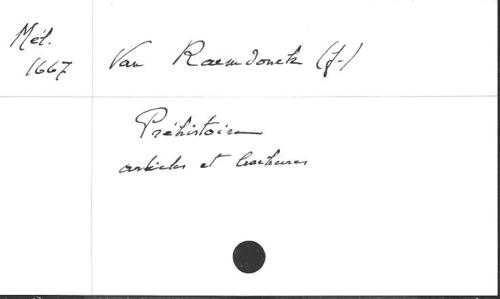 Mél.
1667
Van Raemdonck (J-)
Préhistoire
articles et brochures